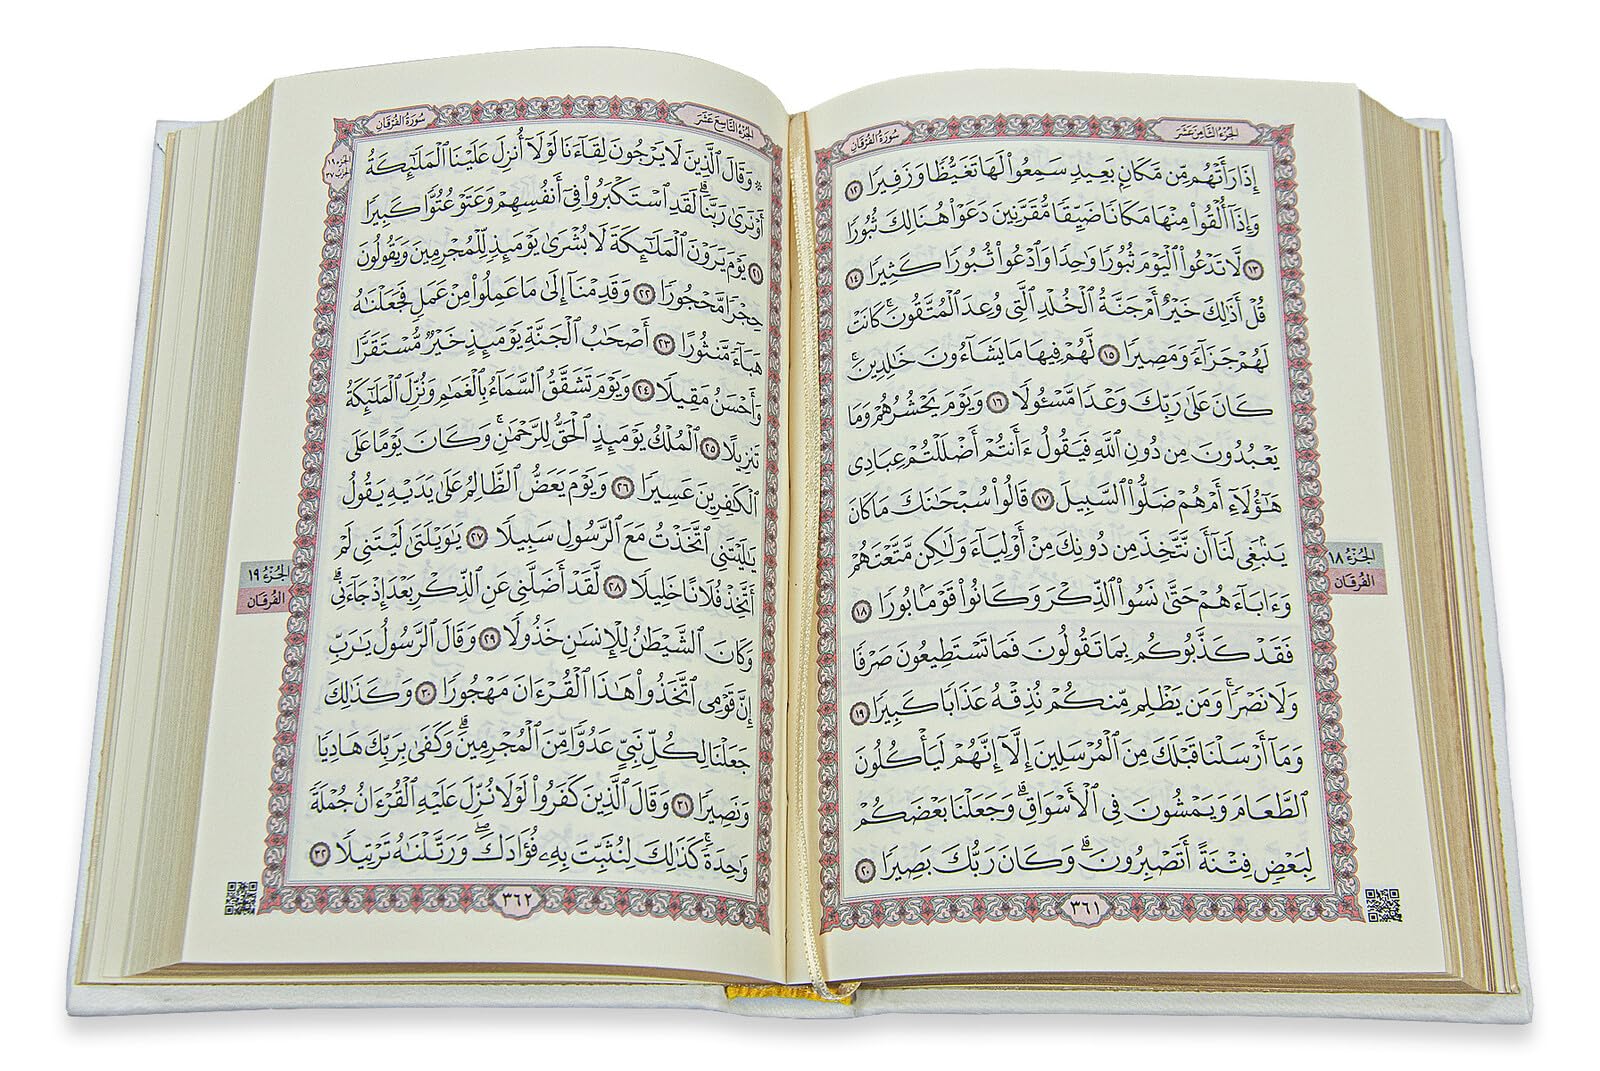 الجزء الثامن عشر
سورة الفرقان
إِذَا رَأَتْهُم مِّن مَّكَانٍ بَعِيدٍ سَمِعُوا۟ لَهَا تَغَيُّظًا وَزَفِيرًا ١٢
وَإِذَآ أُلْقُوا۟ مِنْهَا مَكَانًا ضَيِّقًا مُّقَرَّنِينَ دَعَوْا۟ هُنَالِكَ ثُبُورًا
١٣ لَّا تَدْعُوا۟ ٱلْيَوْمَ ثُبُورًا وَٰحِدًا وَٱدْعُوا۟ ثُبُورًا كَثِيرًا ١٤
قُلْ أَذَٰلِكَ خَيْرٌ أَمْ جَنَّةُ ٱلْخُلْدِ ٱلَّتِى وُعِدَ ٱلْمُتَّقُونَ ۚ كَانَتْ
لَهُمْ جَزَآءً وَمَصِيرًا ١٥ لَّهُمْ فِيهَا مَا يَشَآءُونَ خَٰلِدِينَ ۚ
كَانَ عَلَىٰ رَبِّكَ وَعْدًا مَّسْـُٔولًا ١٦ وَيَوْمَ يَحْشُرُهُمْ وَمَا
يَعْبُدُونَ مِن دُونِ ٱللَّهِ فَيَقُولُ ءَأَنتُمْ أَضْلَلْتُمْ عِبَادِى
هَٰٓؤُلَآءِ أَمْ هُمْ ضَلُّوا۟ ٱلسَّبِيلَ ١٧ قَالُوا۟ سُبْحَٰنَكَ مَا كَانَ
يَنۢبَغِى لَنَآ أَن نَّتَّخِذَ مِن دُونِكَ مِنْ أَوْلِيَآءَ وَلَٰكِن مَّتَّعْتَهُمْ
وَءَابَآءَهُمْ حَتَّىٰ نَسُوا۟ ٱلذِّكْرَ وَكَانُوا۟ قَوْمًۢا بُورًا ١٨
فَقَدْ كَذَّبُوكُم بِمَا تَقُولُونَ فَمَا تَسْتَطِيعُونَ صَرْفًا
وَلَا نَصْرًا ۚ وَمَن يَظْلِم مِّنكُمْ نُذِقْهُ عَذَابًا كَبِيرًا ١٩
وَمَآ أَرْسَلْنَا قَبْلَكَ مِنَ ٱلْمُرْسَلِينَ إِلَّآ إِنَّهُمْ لَيَأْكُلُونَ
ٱلطَّعَامَ وَيَمْشُونَ فِى ٱلْأَسْوَاقِ ۗ وَجَعَلْنَا بَعْضَكُمْ
لِبَعْضٍ فِتْنَةً أَتَصْبِرُونَ ۗ وَكَانَ رَبُّكَ بَصِيرًا ٢٠
الجزء ١٨
الفرقان
٣٦١
الجزء التاسع عشر
سورة الفرقان
الجزء ١٩
الحزب ٣٧
* وَقَالَ ٱلَّذِينَ لَا يَرْجُونَ لِقَآءَنَا لَوْلَآ أُنزِلَ عَلَيْنَا ٱلْمَلَٰٓئِكَةُ
أَوْ نَرَىٰ رَبَّنَا ۗ لَقَدِ ٱسْتَكْبَرُوا۟ فِىٓ أَنفُسِهِمْ وَعَتَوْ عُتُوًّا كَبِيرًا
٢١ يَوْمَ يَرَوْنَ ٱلْمَلَٰٓئِكَةَ لَا بُشْرَىٰ يَوْمَئِذٍ لِّلْمُجْرِمِينَ وَيَقُولُونَ
حِجْرًا مَّحْجُورًا ٢٢ وَقَدِمْنَآ إِلَىٰ مَا عَمِلُوا۟ مِنْ عَمَلٍ فَجَعَلْنَٰهُ
هَبَآءً مَّنثُورًا ٢٣ أَصْحَٰبُ ٱلْجَنَّةِ يَوْمَئِذٍ خَيْرٌ مُّسْتَقَرًّا
وَأَحْسَنُ مَقِيلًا ٢٤ وَيَوْمَ تَشَقَّقُ ٱلسَّمَآءُ بِٱلْغَمَٰمِ وَنُزِّلَ ٱلْمَلَٰٓئِكَةُ
تَنزِيلًا ٢٥ ٱلْمُلْكُ يَوْمَئِذٍ ٱلْحَقُّ لِلرَّحْمَٰنِ ۚ وَكَانَ يَوْمًا عَلَى
ٱلْكَٰفِرِينَ عَسِيرًا ٢٦ وَيَوْمَ يَعَضُّ ٱلظَّالِمُ عَلَىٰ يَدَيْهِ يَقُولُ
يَٰلَيْتَنِى ٱتَّخَذْتُ مَعَ ٱلرَّسُولِ سَبِيلًا ٢٧ يَٰوَيْلَتَىٰ لَيْتَنِى لَمْ
أَتَّخِذْ فُلَانًا خَلِيلًا ٢٨ لَّقَدْ أَضَلَّنِى عَنِ ٱلذِّكْرِ بَعْدَ إِذْ جَآءَنِى ۗ
وَكَانَ ٱلشَّيْطَٰنُ لِلْإِنسَٰنِ خَذُولًا ٢٩ وَقَالَ ٱلرَّسُولُ يَٰرَبِّ
إِنَّ قَوْمِى ٱتَّخَذُوا۟ هَٰذَا ٱلْقُرْءَانَ مَهْجُورًا ٣٠ وَكَذَٰلِكَ
جَعَلْنَا لِكُلِّ نَبِىٍّ عَدُوًّا مِّنَ ٱلْمُجْرِمِينَ ۗ وَكَفَىٰ بِرَبِّكَ هَادِيًا
وَنَصِيرًا ٣١ وَقَالَ ٱلَّذِينَ كَفَرُوا۟ لَوْلَا نُزِّلَ عَلَيْهِ ٱلْقُرْءَانُ جُمْلَةً
وَٰحِدَةً ۚ كَذَٰلِكَ لِنُثَبِّتَ بِهِۦ فُؤَادَكَ ۖ وَرَتَّلْنَٰهُ تَرْتِيلًا ٣٢
الجزء ١٩
الفرقان
٣٦٢